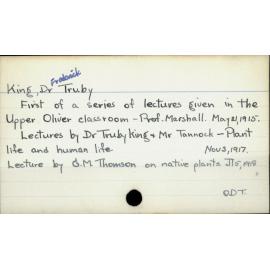 Frederick
King, Dr Truby
First of a series of lectures given in the
Upper Oliver classroom - Prof. Marshall. May 21, 1915.
Lectures by Dr Truby King & Mr Tannock - Plant
life and human life Nov 3, 1917.
Lecture by G. M. Thomson on native plants 5, 1918
O.D.T.